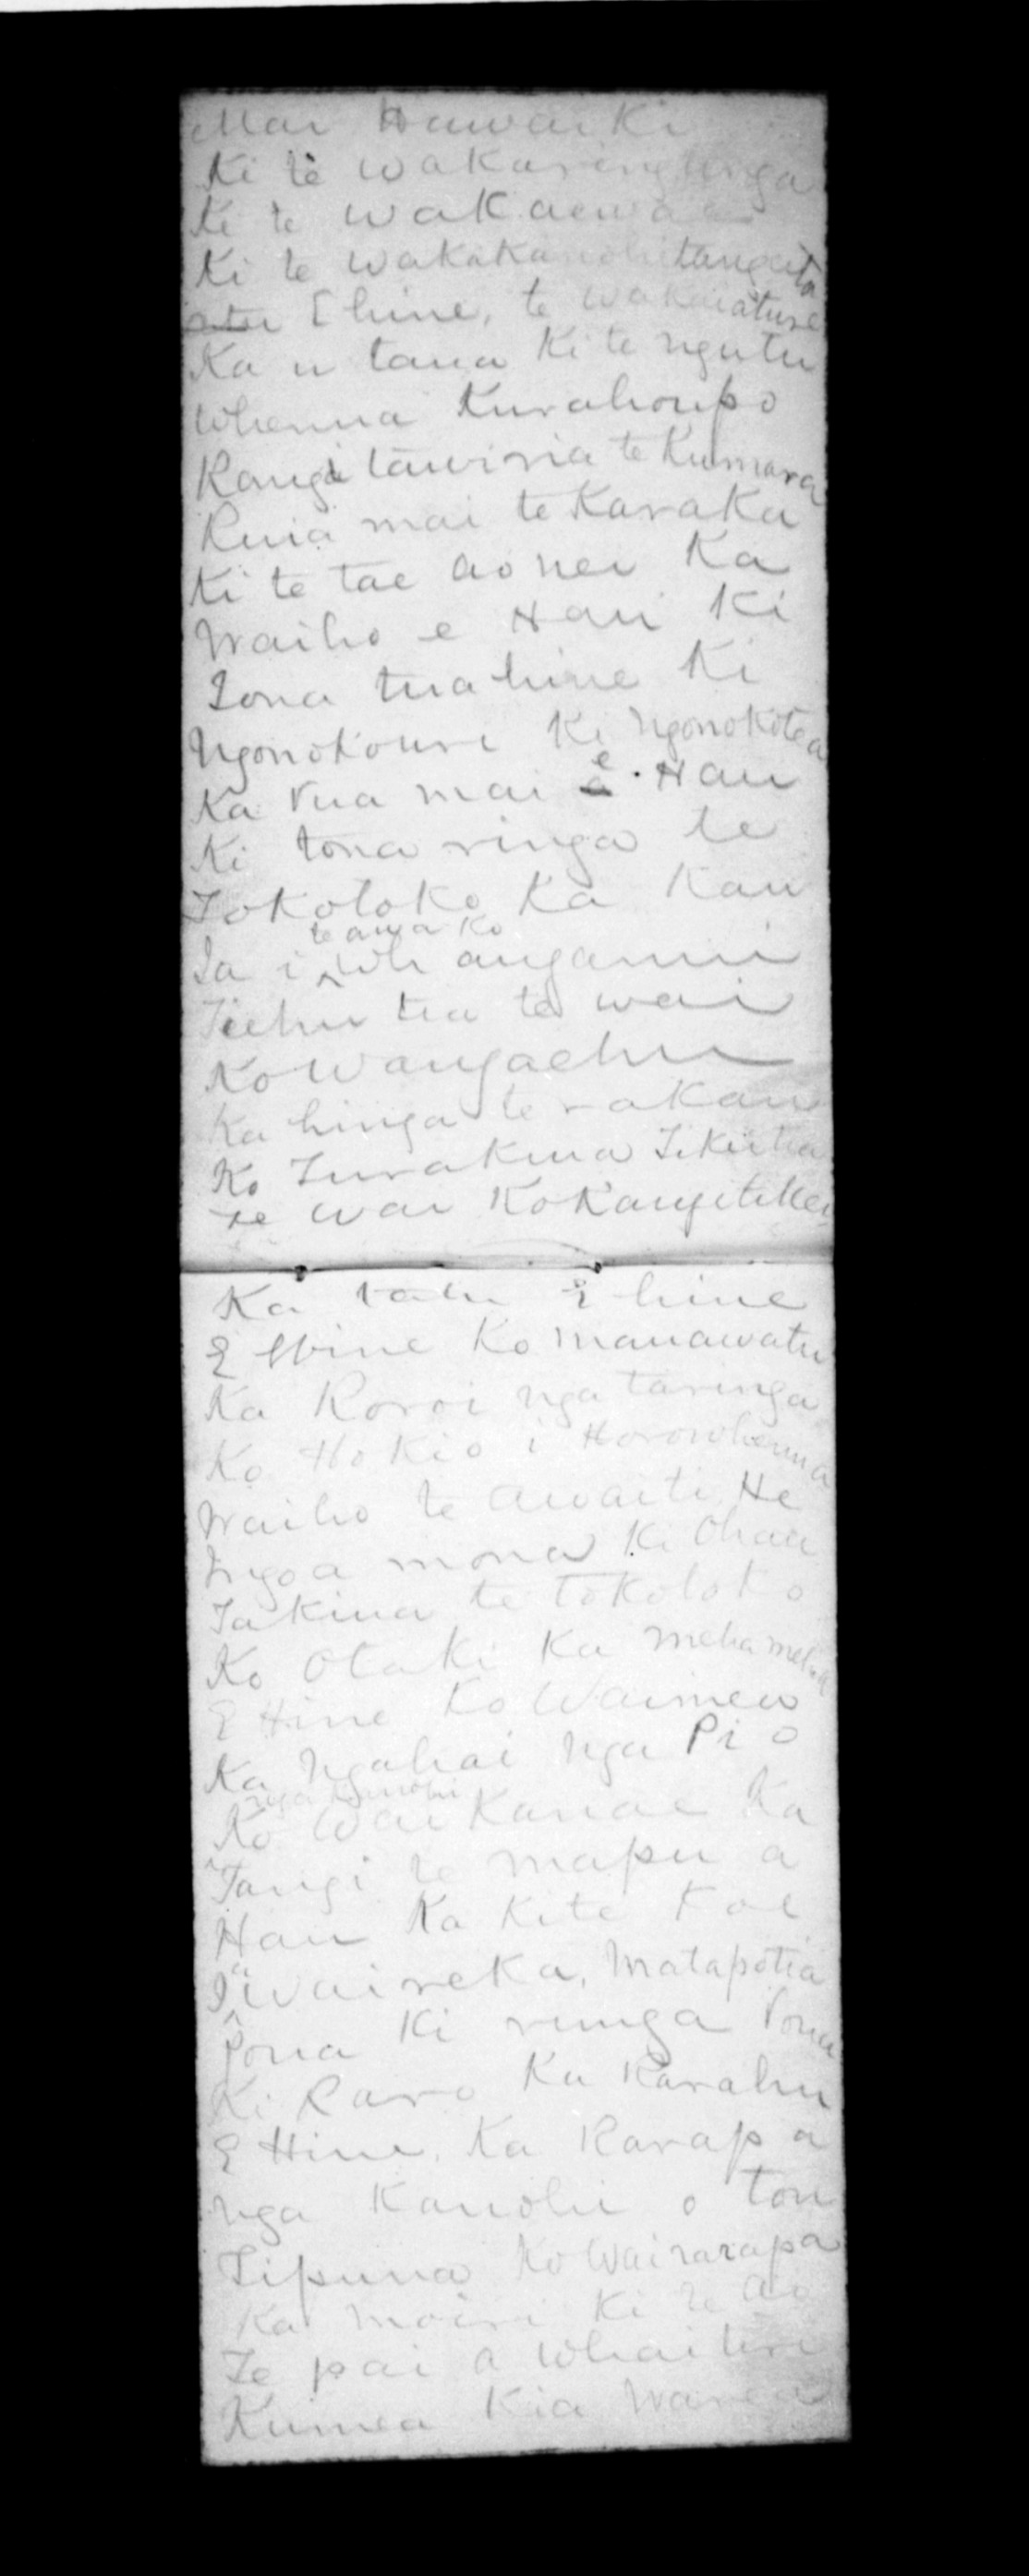 Mai Hawaiki
Ki te wakaringaringa
Ki te wakaewa
Ki te wakakanohitangata
E hine, te wakaiature
Ka u tana ki te ngutu
Whenua Kurahoupo
Rangitawiria te Kumara
Ruia mai te Karaka
Ki te tae ao nei Ka
Waiho e Hau Ki
Tona tuahine Ki
Ngonokouri Ki Ngonokotea
Ka rua mai e Hau
Ki tona ringa te
Tokotoko Ka Kau
Ia i te awa ko Whanganui
Tiehu tia te wai
Ko Wangaehu
Ka hinga te rakau
Ko Turakina Tikitia
te wai Ko Rangitikei
Ka tatu E hine
E Hine Ko Manawatu
Ka Roroi nga taringa
Ko Hokio i Horowhenua
Waiho te awaiti He
Ngoa mona Ki Ohau
Takina te tokotoko
Ko Otaki Ka meha meha
E Hine Ko Waimeo
Ka Ngahai nga Pi o
nga kanohi
Ko Waikanae Ka
Tangi te mapu a
Hau Ka kite koe
I a Waireka, Matapotia
Poua Ki runga Poua
Ki Raro Ka Rarahu
E Hine, Ka Rarapa
nga Kanohi o tou
Tipuna Ko Wairarapa
Ka moiri Ki te ao
Te pai a Whaitiri
Kumea Kia Warea